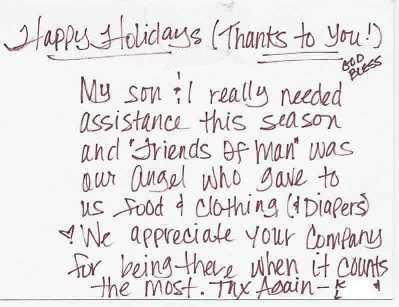 Happy Holidays (Thanks to You!)
GOD BLESS
My son & I really needed
assistance this season
and "Friends Of Man" was
our angel who gave to
us food & clothing (& Diapers)
♥ We appreciate your company
for being there when it counts
the most. Thx Again -